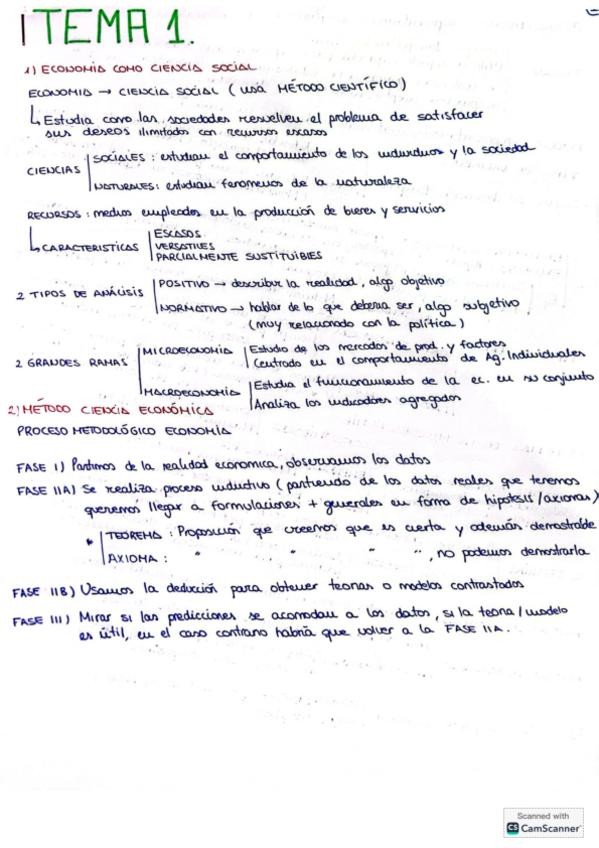 TEMA 1.
1) ECONOMÍA COMO CIENCIA SOCIAL
ECONOMÍA → CIENCIA SOCIAL (USA MÉTODO CIENTÍFICO)
↳ Estudia como las sociedades resuelven el problema de satisfacer
sus deseos ilimitados con recursos escasos
CIENCIAS
SOCIALES: estudian el comportamiento de los individuos y la sociedad
NATURALES: estudian fenomenos de la naturaleza
RECURSOS: medios empleados en la producción de bienes y servicios
↳ CARACTERISTICAS
ESCASOS
VERSATILES
PARCIALMENTE SUSTITUIBLES
2 TIPOS DE ANÁLISIS
POSITIVO → describir la realidad, algo objetivo
NORMATIVO → hablar de lo que deberia ser, algo subjetivo
(muy relacionado con la política)
2 GRANDES RAMAS
MICROECONOMÍA
Estudio de los mercados de prod. y factores
Centrado en el comportamiento de Ag. Individuales
MACROECONOMÍA
Estudia el funcionamiento de la ec. en su conjunto
Analiza los indicadores agregados
2) MÉTODO CIENCIA ECONÓMICA
PROCESO METODOLÓGICO ECONOMÍA
FASE I) Partimos de la realidad economica, observamos los datos
FASE IIA) Se realiza proceso inductivo (partiendo de los datos reales que tenemos
queremos llegar a formulaciones + generales en forma de hipotesis/axiomas)
* TEOREMA: Proposición que creemos que es cierta y además demostrable
AXIOMA: " " " ", no podemos demostrarla
FASE IIB) Usamos la deducción para obtener teorias o modelos contrastados
FASE III) Mirar si las predicciones se acomodan a los datos, si la teoria/modelo
es útil, en el caso contrario habría que volver a la FASE IIA.
Scanned with
CS CamScanner